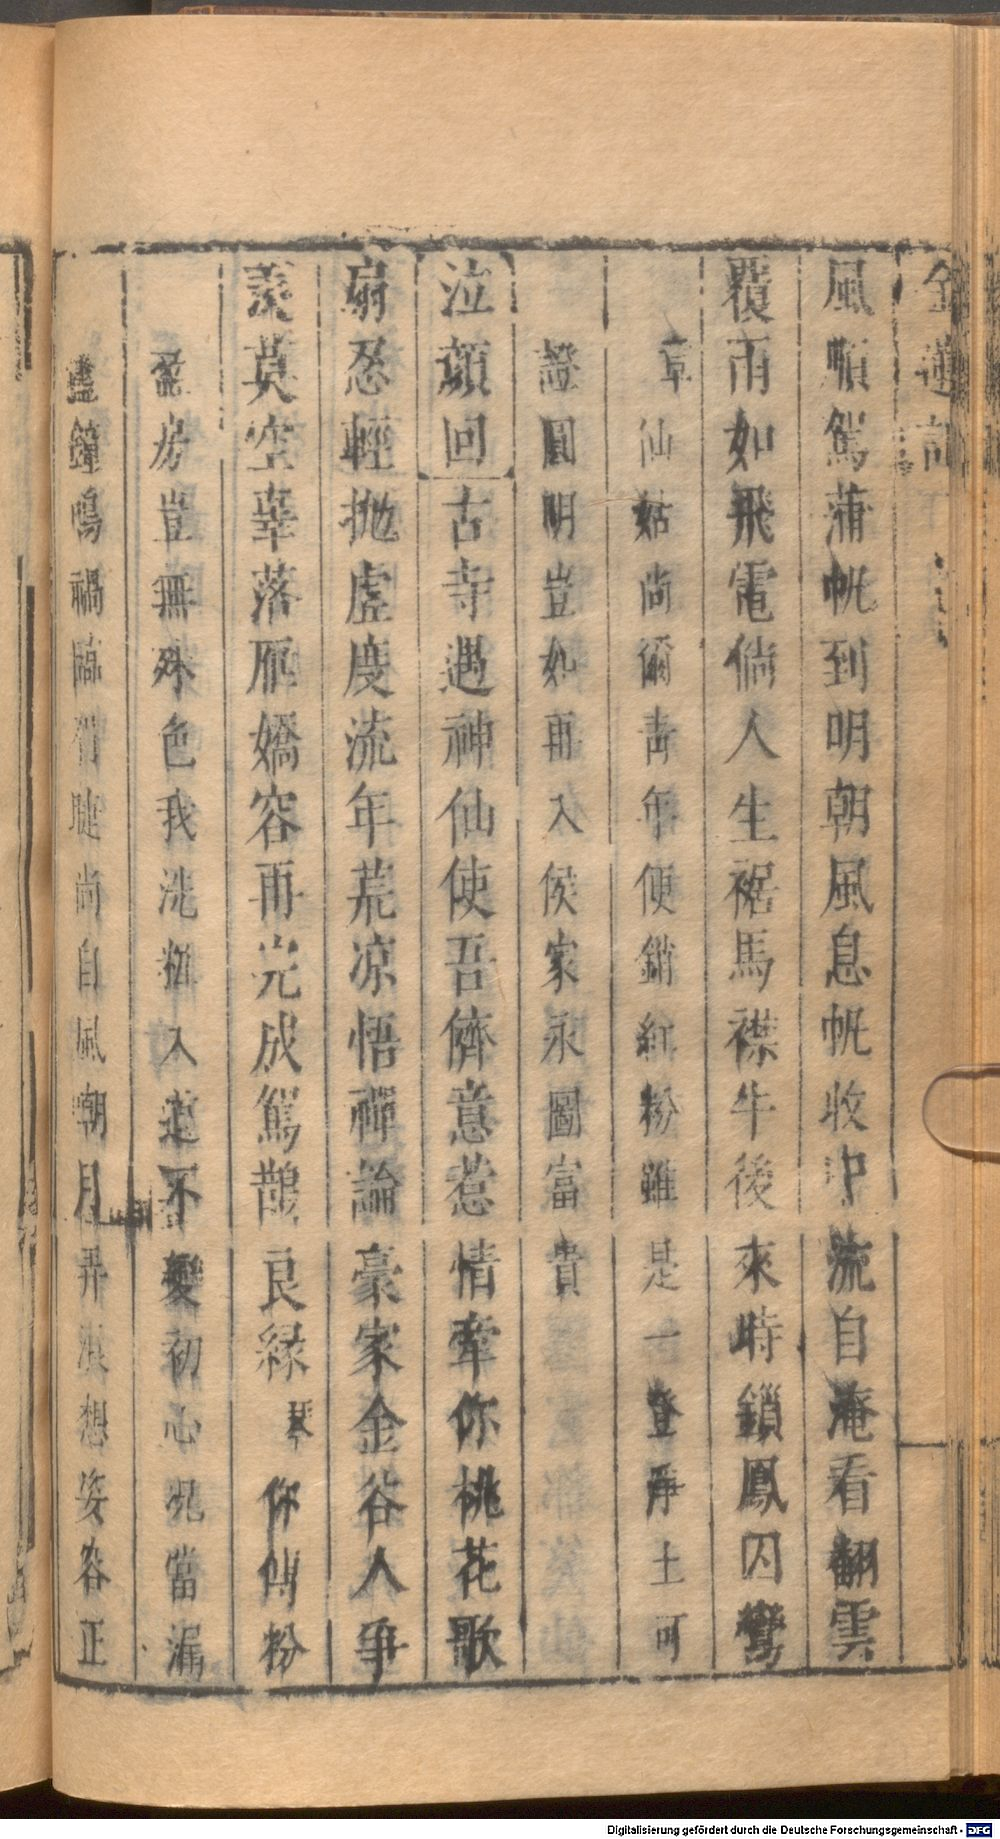 金蓮記
風順駕蒲帆到明朝風息帆收中流自淹看翻雲
覆雨如飛電倘人生裾馬襟牛後來時鎖鳳囚鸞
草仙姑尚爾青年便銷紅粉雖是一登淨土可
證圓明豈如再入侯家永圖富貴
泣顏回古寺遇神仙使吾儕意惹情牽你桃花歌
扇忍輕拋虛度流年荒凉悟禪論豪家金谷人爭
羨莫空辜落雁嬌容再完成鴛鵲良緣琴你傅粉
盈房豈無殊色我洗粧入道不變初心况當漏
盡鐘鳴禍臨眉睫尚自風朝月弄浪想姿容正
Digitalisierung gefördert durch die Deutsche Forschungsgemeinschaft - DFG